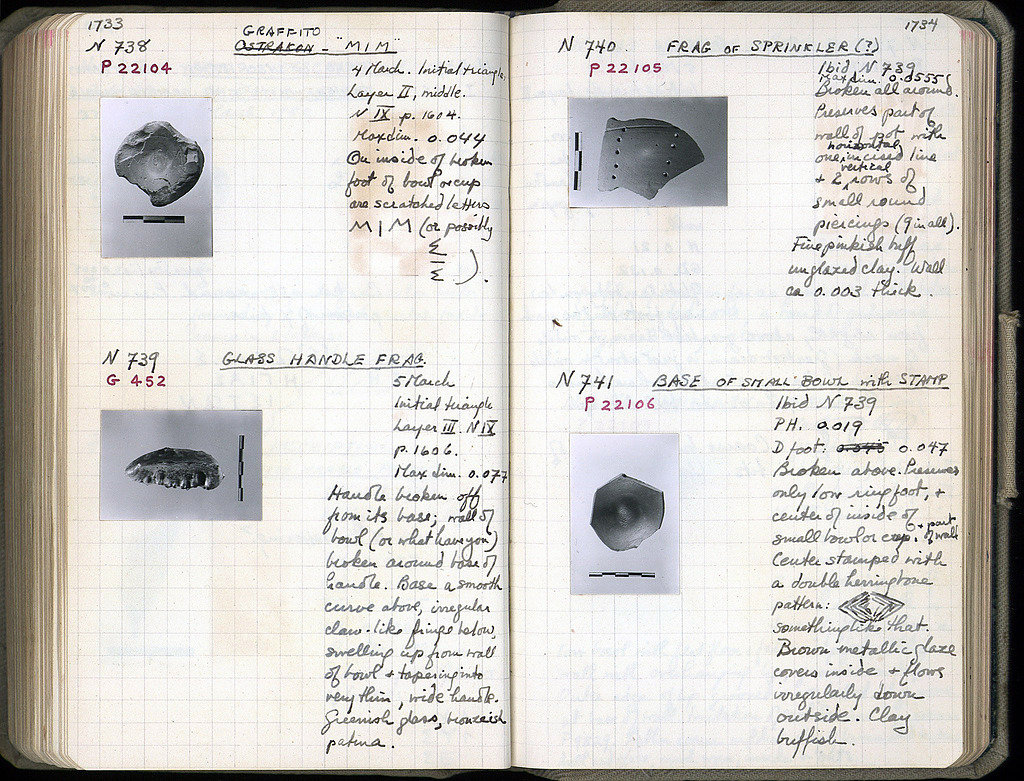 1733
GRAFFITO
N 738 OSTRAKON - "MIM"
P 22104
4 March. Initial triangle,
Layer II, middle.
N IX p. 1604.
Max dim. 0.044
On inside of broken
foot of bowl or cup
are scratched letters
MIM (or possibly
Σ
I
Σ ).
N 739 GLASS HANDLE FRAG
G 452
5 March
Initial triangle
Layer III. N IX
p. 1606.
Max dim. 0.077
Handle broken off
from its base; wall of
bowl (or what have you)
broken around base of
handle. Base a smooth
curve above, irregular
claw-like fringe below,
swelling up from wall
of bowl + tapering into
very thin, wide handle.
Greenish glass, bronzeish
patina.
1734
N 740. FRAG OF SPRINKLER (?)
P 22105
Ibid N 739
Max dim. 0.0555
Broken all around.
Preserves part of
wall of pot with
horizontal
one incised line
vertical
+ 2 rows of
small round
piercings (9 in all).
Fine pinkish buff
unglazed clay. Wall
ca 0.003 thick.
N 741 BASE OF SMALL BOWL with STAMP
P 22106
Ibid N 739
PH. 0.019
D foot: 0.045 0.047
Broken above. Preserves
only low ring foot, +
center of inside of
small bowl or cup. + part of wall
Center stamped with
a double herringbone
pattern:
something like that.
Brown metallic glaze
covers inside + flows
irregularly down
outside. Clay
buffish.